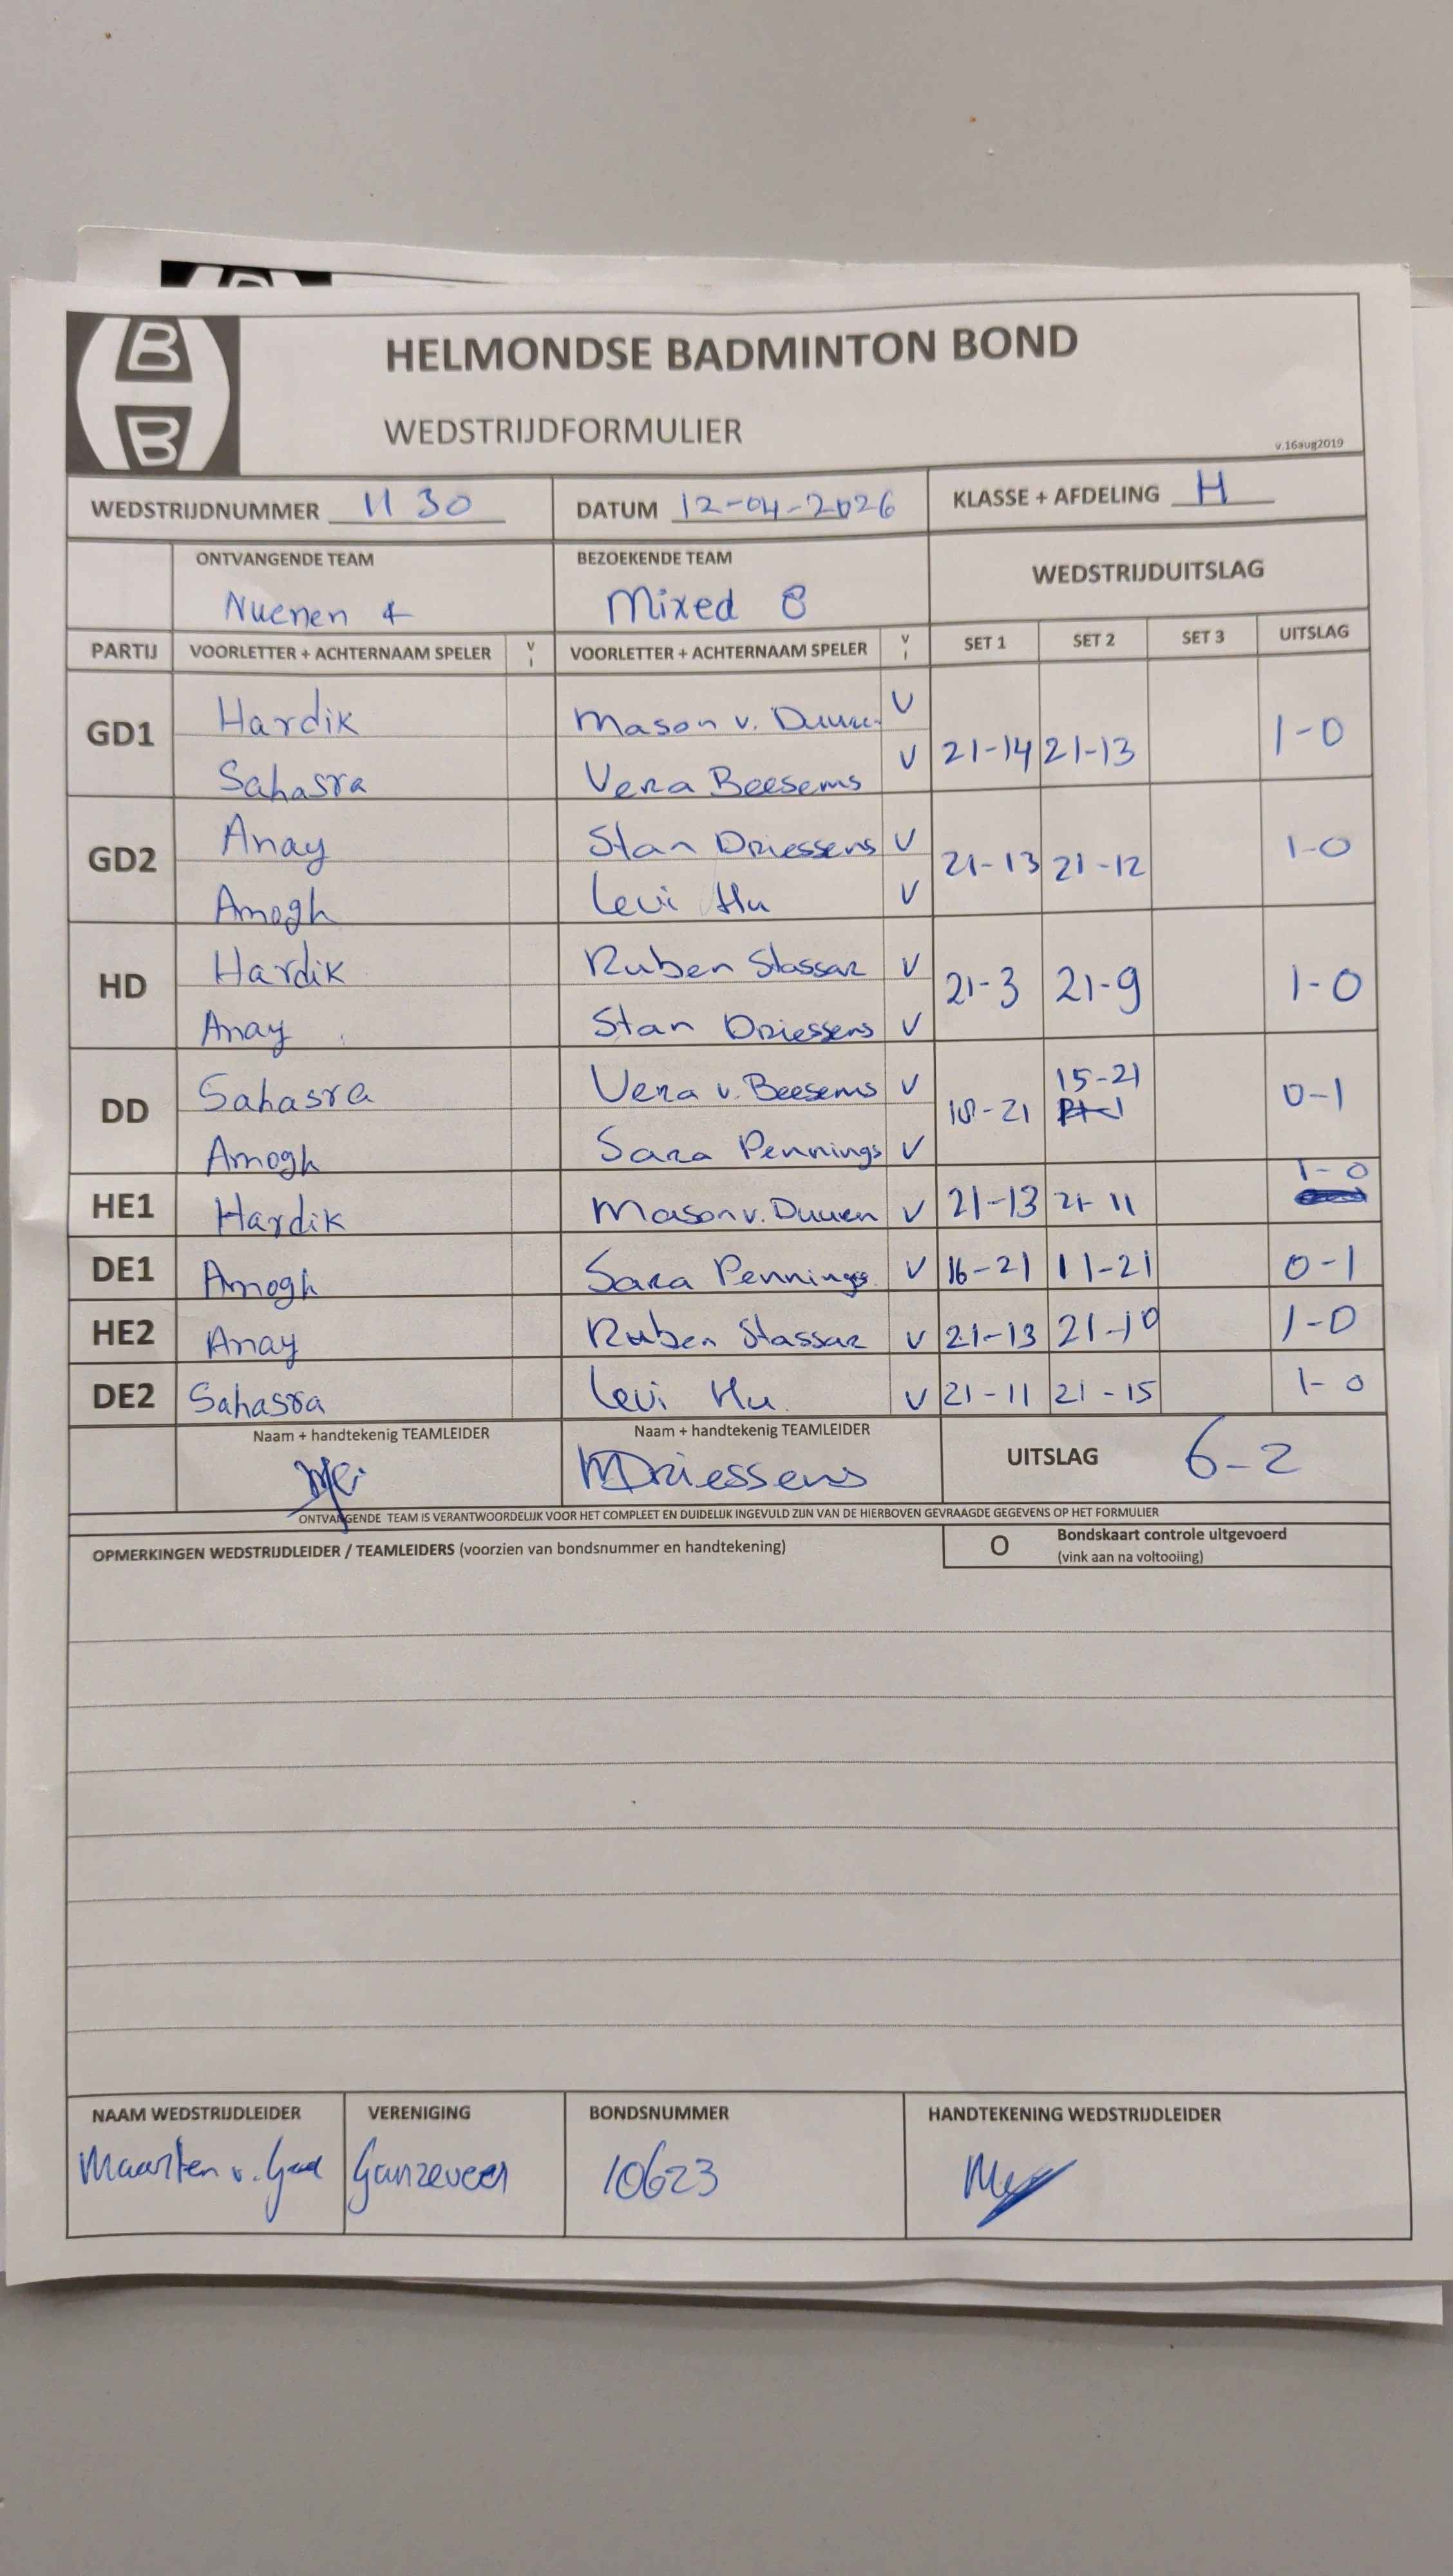 B
B
HELMONDSE BADMINTON BOND
WEDSTRIJDFORMULIER
v.16aug2019
WEDSTRIJDNUMMER 1130 DATUM 12-04-2026 KLASSE + AFDELING H
ONTVANGENDE TEAM BEZOEKENDE TEAM WEDSTRIJDUITSLAG
Nuenen 4 Mixed 8
PARTIJ VOORLETTER + ACHTERNAAM SPELER V I VOORLETTER + ACHTERNAAM SPELER V I SET 1 SET 2 SET 3 UITSLAG
GD1 Hardik Mason v. V
Sahasra Vera Beesems V 21-14 21-13 1-0
GD2 Anay Stan Driessens V 21-13 21-12 1-0
Amogh Levi Hu V
HD Hardik Ruben Stassar V 21-3 21-9 1-0
Anay Stan Driessens V
DD Sahasra Vera v. Beesems V 18-21 15-21 0-1
Amogh Sara Pennings V
HE1 Hardik Mason v. Duuren V 21-13 21-11 1-0
DE1 Amogh Sara Pennings V 16-21 11-21 0-1
HE2 Anay Ruben Stassar V 21-13 21-10 1-0
DE2 Sahasra Levi Hu V 21-11 21-15 1-0
Naam + handtekenig TEAMLEIDER Naam + handtekenig TEAMLEIDER UITSLAG 6-2
MDriessens
ONTVANGENDE TEAM IS VERANTWOORDELIJK VOOR HET COMPLEET EN DUIDELIJK INGEVULD ZIJN VAN DE HIERBOVEN GEVRAAGDE GEGEVENS OP HET FORMULIER
OPMERKINGEN WEDSTRIJDLEIDER / TEAMLEIDERS (voorzien van bondsnummer en handtekening) O Bondskaart controle uitgevoerd
(vink aan na voltooiing)
NAAM WEDSTRIJDLEIDER VERENIGING BONDSNUMMER HANDTEKENING WEDSTRIJDLEIDER
Maarten v. Ganzeveer 10623